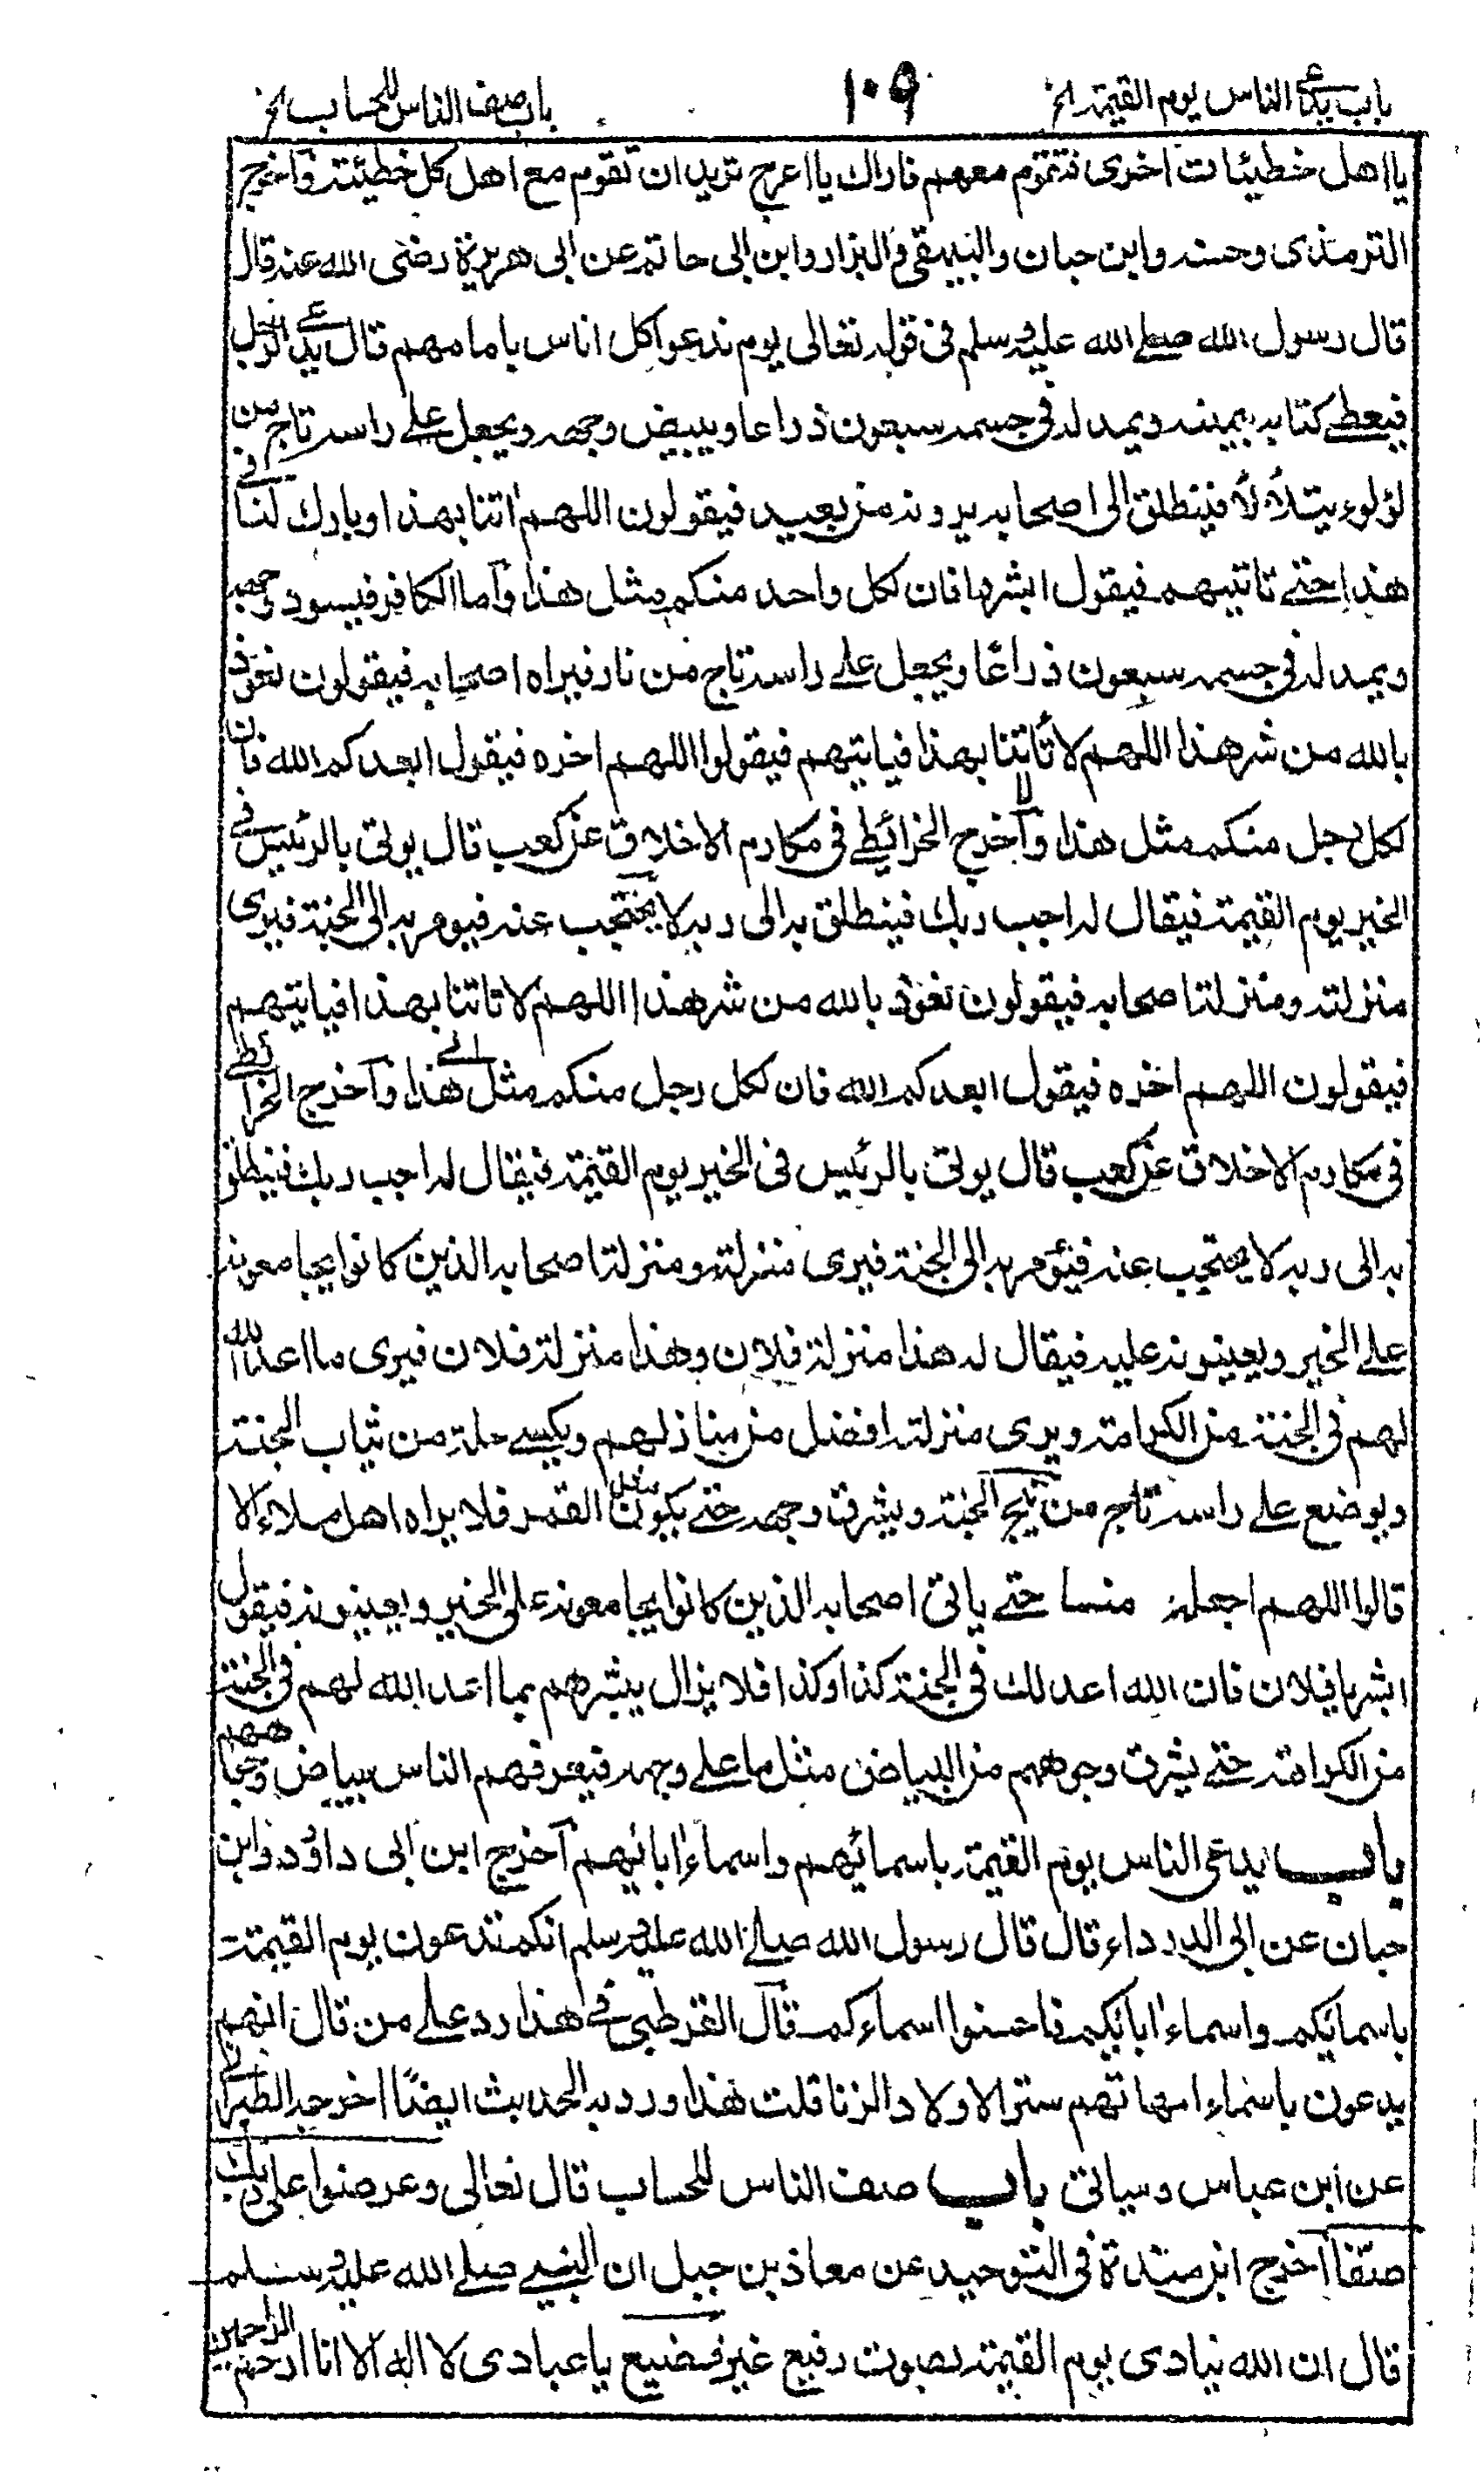 باب يدعى الناس يوم القيمة الخ ١٠٩ باب صف الناس للحساب الخ
يا اهل خطيئات اخرى فتقوم معهم فاراك يا اعرج تريد ان تقوم مع اهل كل خطيئة وآخرج
الترمذى وحسنه وابن حبان والبيهقى والبزار وابن ابى حاتم عن ابى هريرة رضى الله عنه قال
قال رسول الله صلے الله عليه وسلم فى قوله تعالى يوم ندعوا كل اناس بامامهم قال يدعى الرجل
فيعطے كتابه بيمينه ويمد له فى جسمه سبعون ذراعا ويبيض وجهه ويجعل علے راسه تاج من
لؤلوء يتلألأ فينطلق الى اصحابه يرونه من بعيد فيقولون اللهم اتنا بهذا وبارك لنا فى
هذا حتے تاتيهم فيقول ابشروا فان لكل واحد منكم مثل هذا وآما الكافر فيسود وجهه
ويمد له فى جسمه سبعون ذراعًا ويجعل علے راسه تاج من نار فيراه اصحابه فيقولون نعوذ
بالله من شر هذا اللهم لا تأتنا بهذا فياتيهم فيقولوا اللهم اخره فيقول ابعدكم الله فان
لكل رجل منكم مثل هذا وآخرج الخرائطے فى مكارم الاخلاق عن كعب قال يوتى بالرئيس فے
الخير يوم القيمة فيقال له اجب ربك فينطلق به الى ربه لا يحتجب عنه فيومر به الى الجنة فيرى
منزلته ومنزلة اصحابه فيقولون نعوذ بالله من شر هذا اللهم لا تاتنا بهذا فياتيهم
فيقولون اللهم اخره فيقول ابعدكم الله فان لكل رجل منكم مثل هذا وآخرج الخرائطے
فى مكارم الاخلاق عن كعب قال يوتى بالرئيس فى الخير يوم القيمة فيقال له اجب ربك فينطلق
به الى ربه لا يحتجب عنه فيؤمر به الى الجنة فيرى منزلته ومنزلة اصحابه الذين كانوا يجامعونه
علے الخير ويعينونه عليه فيقال له هذا منزلة فلان وهذا منزلة فلان فيرى ما اعد الله
لهم فى الجنة من الكرامة ويرى منزلته افضل من منازلهم ويكسے حلة من ثياب الجنة
ويوضع علے راسه تاج من تيج الجنة ويشرق وجهه حتے يكون مثل القمر فلا يراه اهل ملاء الا
قالوا اللهم اجعله منا حتے ياتى اصحابه الذين كانوا يجامعونه على الخير ويعينونه فيقول
ابشر يا فلان فان الله اعد لك فى الجنة كذا وكذا فلا يزال يبشرهم بما اعد الله لهم فى الجنة
من الكرامة حتے يشرق وجوههم من البياض مثل ما علے وجهه فيعرفهم الناس ببياض وجوههم
باب يدعى الناس يوم القيمة باسمائهم واسماء اٰبائهم آخرج ابن ابى داؤد وابن
حبان عن ابى الدرداء قال قال رسول الله صلے الله عليه وسلم انكم تدعون يوم القيمة
باسمائكم واسماء اٰبائكم فاحسنوا اسماءكم قآل القرطبى فے هذا رد علے من قال انهم
يدعون باسماء امهاتهم ستر الاولاد الزنا قلت هذا ورد به الحديث ايضًا اخرجه الطبرانے
عن ابن عباس وسياتى باب صف الناس للحساب قال تعالى وعرضوا على ربك
صفًّا اخرج ابن مندة فى التوحيد عن معاذ بن جبل ان النبے صلے الله عليه وسلم
قال ان الله ينادى يوم القيمة بصوت رفيع غير فضيع يا عبادى لا اله الا انا ارحم الراحمين